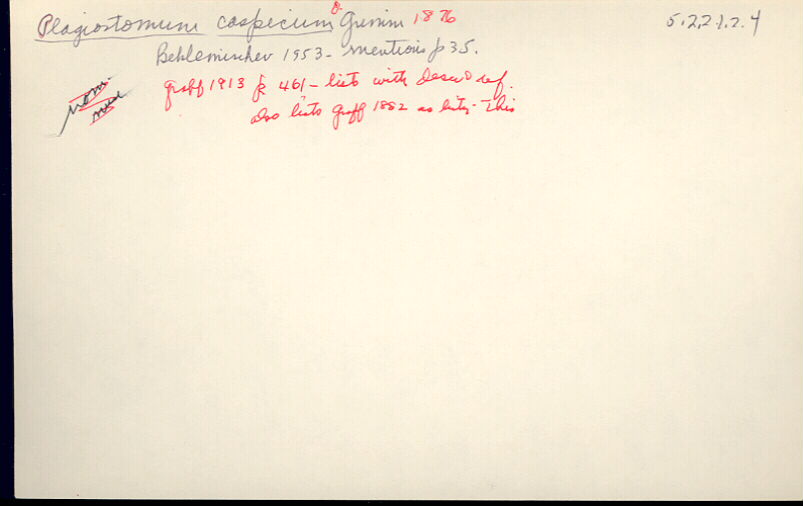 Plagiostomum caspicum O. Grimm 1876 5.2.2.1.2.4
Beklemischev 1953 - mentions p 35.
nom. nud Graff 1913 p 461 - lists with descr & ref.
also lists Graff 1882 as listing this